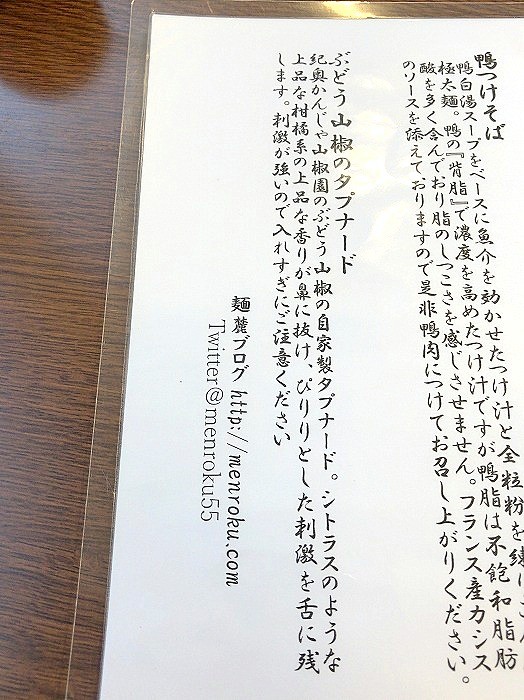 鴨つけそば
鴨白湯スープをベースに魚介を効かせたつけ汁と全粒粉を練
極太麺。鴨の『背脂』で濃度を高めたつけ汁ですが鴨脂は不飽和脂肪
酸を多く含んでおり脂のしつこさを感じさせません。フランス産カシス
のソースを添えておりますので是非鴨肉につけてお召し上がりください。
ぶどう山椒のタプナード
紀奥かんじゃ山椒園のぶどう山椒の自家製タプナード。シトラスのような
上品な柑橘系の上品な香りが鼻に抜け、ぴりりとした刺激を舌に残
します。刺激が強いので入れすぎにご注意ください
麺麓ブログ http://menroku.com
Twitter@menroku55